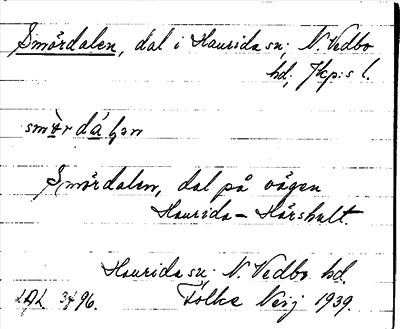 Smördalen, dal i Haurida sn; N. Vedbo
hd; Jkp:s l.
smö̀r dá ꞎən
Smördalen, dal på vägen
Haurida - Hårshult.
Haurida sn; N. Vedbo hd.
LAL 3496. Folke 1939.